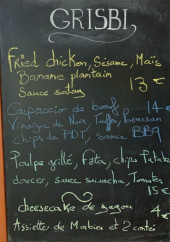 GRISBI
Fried chicken, Sésame, Maïs
Banane plantain
Sauce satay 13 €
Carpaccio de bœuf 14 €
Vinaigre de Noix, Truffe, parmesan
Chips de PDT, sauce BBQ
Poulpe grillé, Feta, chips Patate
douce, sauce sriracha, Tomates,
15 €
cheesecake de 4 €
Assiette de 2 comtés